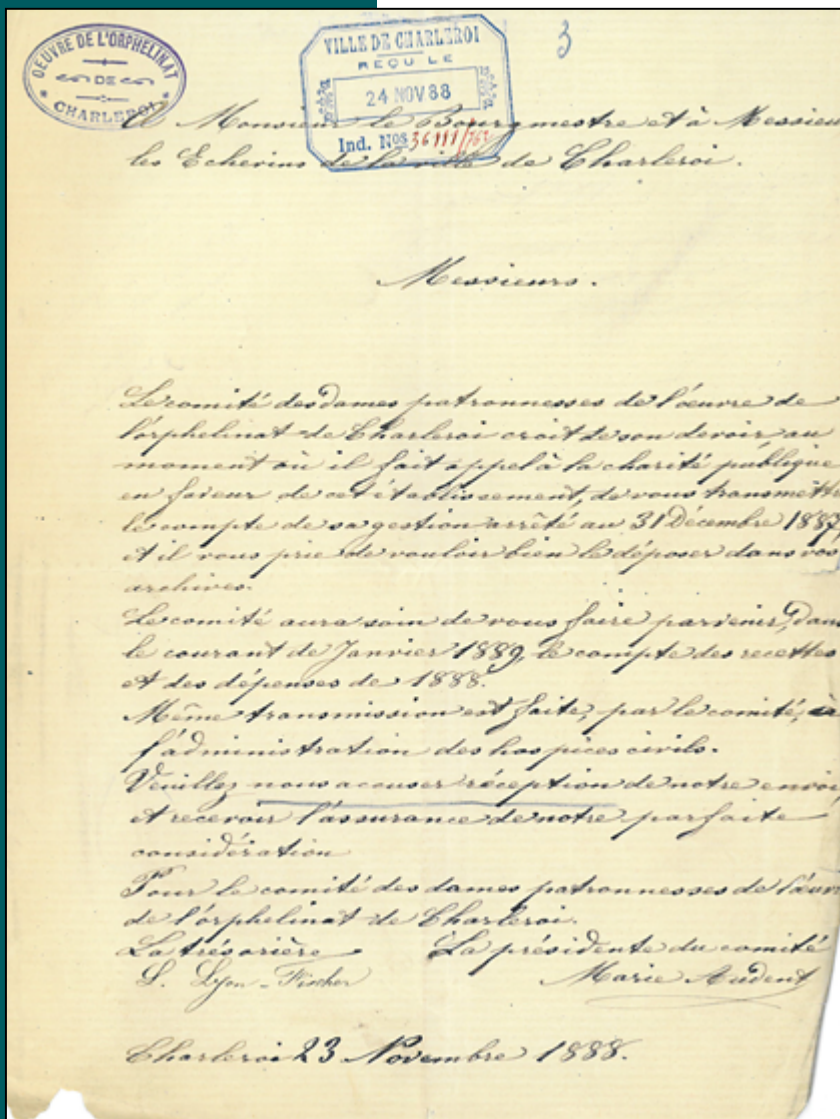 OEUVRE DE L'ORPHELINAT
DE
CHARLEROI
VILLE DE CHARLEROI
REÇU LE
24 NOV 88
Ind. Nos 36111/
3
A Monsieur le Bourgmestre et à Messieu
les Echevins de la ville de Charleroi.
Messieurs.
Le comité des dames patronnesses de l'œuvre de
l'orphelinat de Charleroi croit de son devoir, au
moment où il fait appel à la charité publique
en faveur de cet établissement, de vous transmettre
le compte de sa gestion arrêté au 31 Décembre 1887,
et il vous prie de vouloir bien le déposer dans vos
archives.
Le comité aura soin de vous faire parvenir, dans
le courant de Janvier 1889, le compte des recettes
et des dépenses de 1888.
Même transmission est faite, par le comité, à
l'administration des hospices civils.
Veuillez nous accuser réception de notre envoi,
et recevoir l'assurance de notre parfaite
considération
Pour le comité des dames patronnesses de l'œuvr
de l'orphelinat de Charleroi.
La trésorière La présidente du comité
L. Lyon-Fincher Marie Audent
Charleroi 23 Novembre 1888.